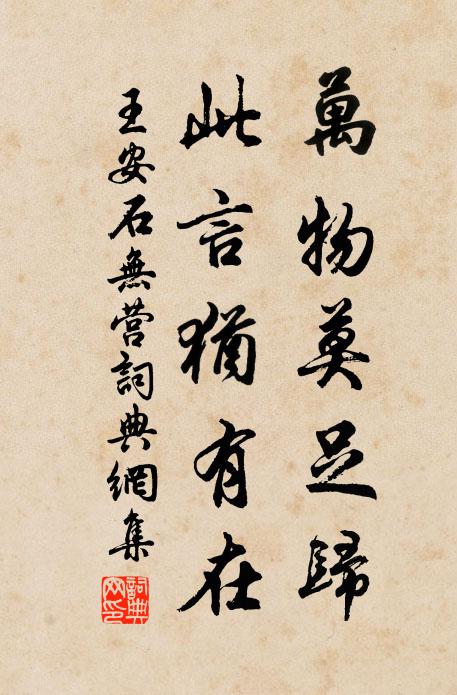 萬物莫足歸
此言猶有在
王安石無營詞典網集
詞典網印